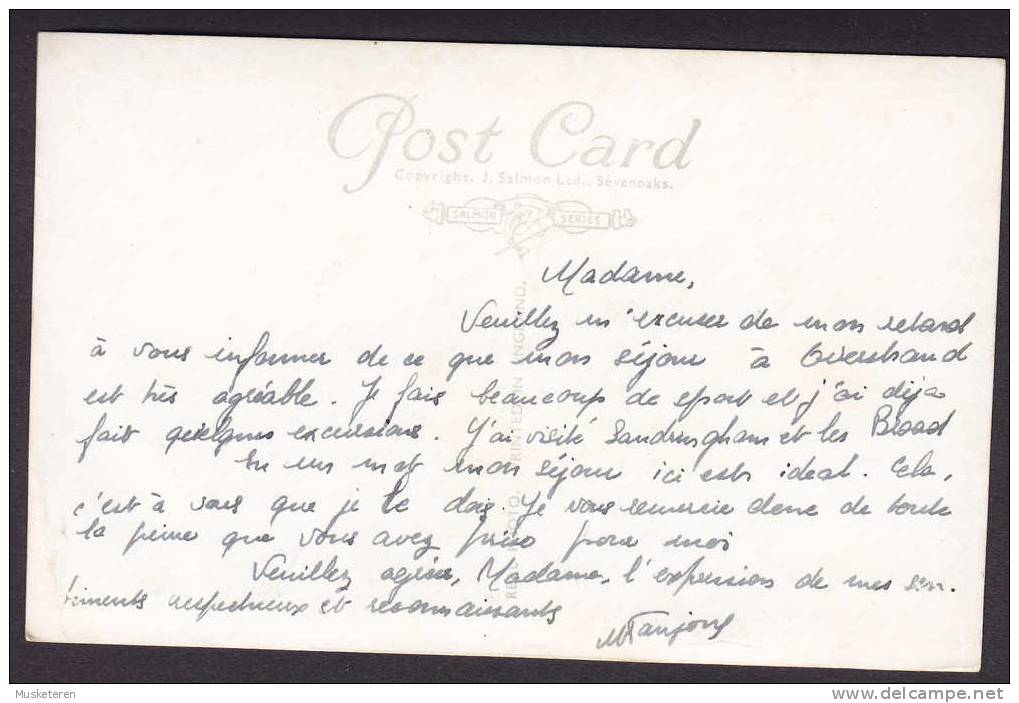 Post Card
Copyright. J. Salmon Ltd., Sevenoaks.
SALMON SERIES
REAL PHOTO. PRINTED IN ENGLAND.
Madame,
Veuillez m'excuser de mon retard
à vous informer de ce que mon séjour à Overstrand
est très agréable. Je fais beaucoup de sport et j'ai déja
fait quelques excursions. J'ai visité Sandringham et les Broad
En un mot mon séjour ici est ideal. Cela,
c'est à vous que je le dois. Je vous remercie donc de toute
la peine que vous avez prise pour moi
Veuillez agréer, Madame, l'expression de mes sen-
timents respectueux et reconnaissants
Musketeren
www.delcampe.net